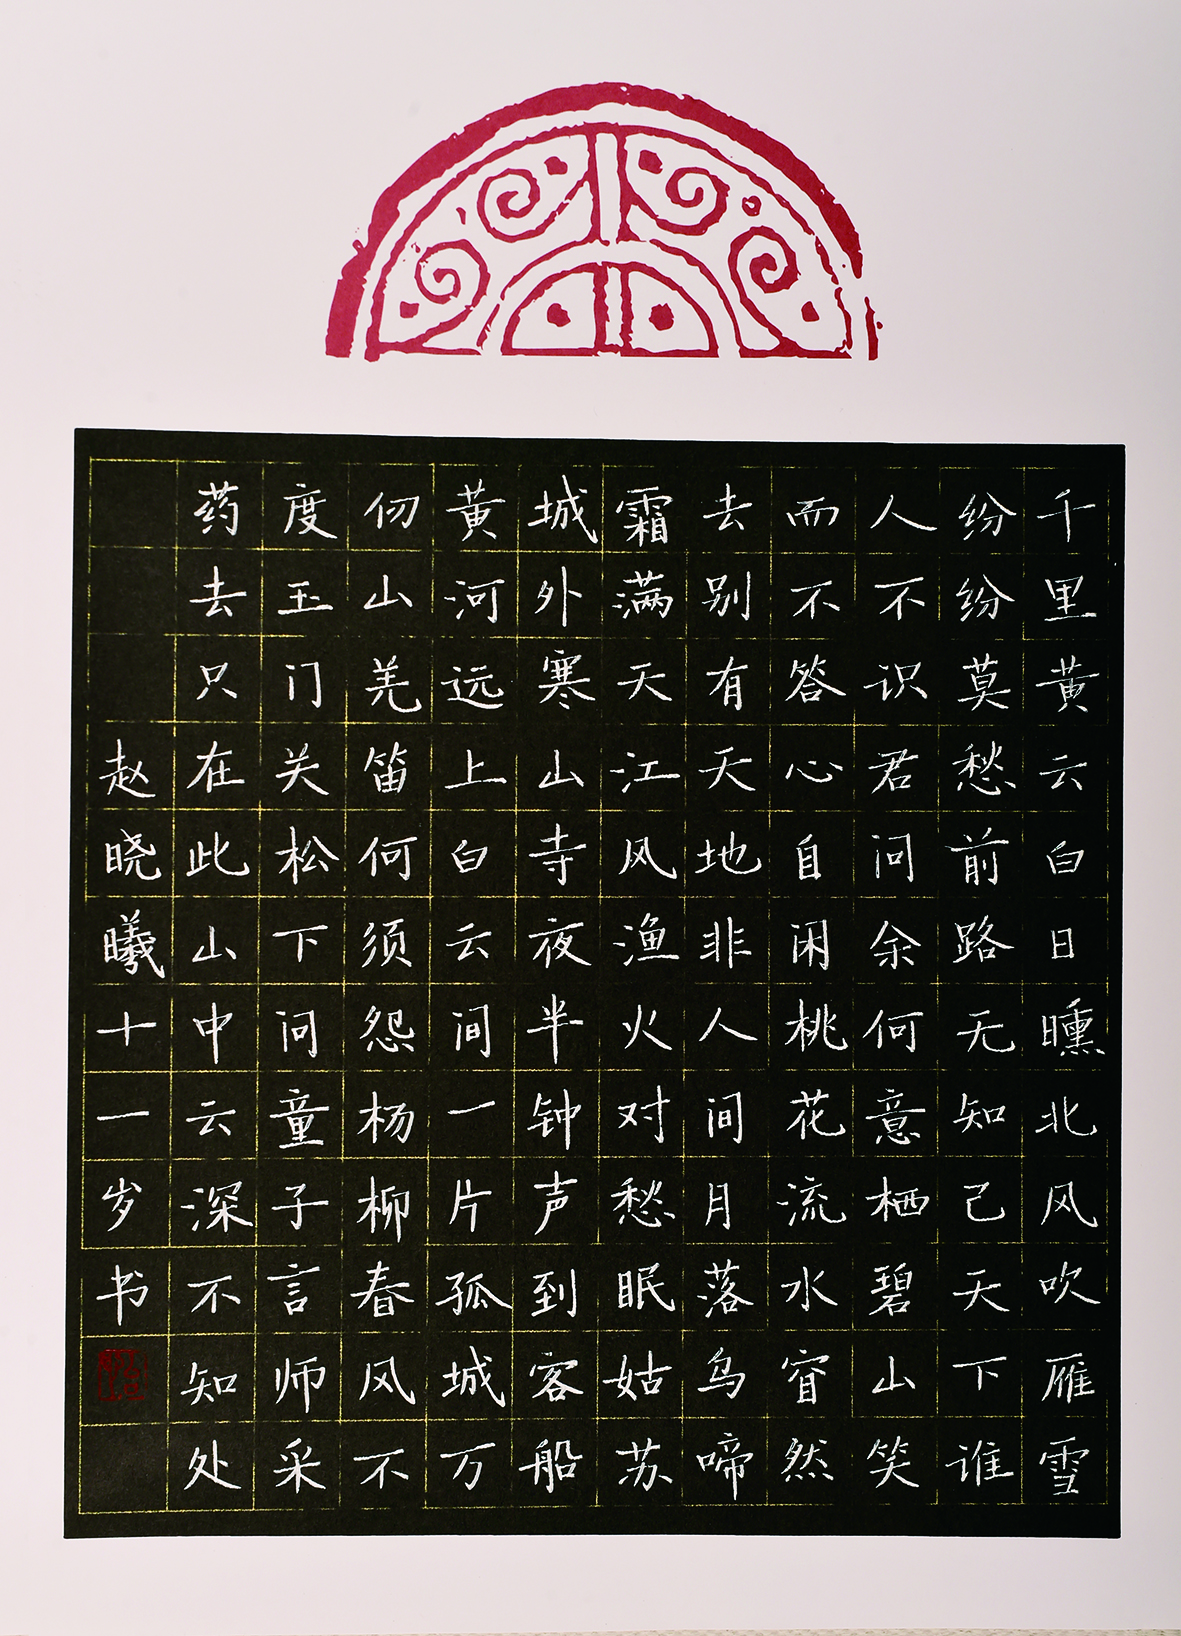 千里黄云白日曛北风吹雁雪
纷纷莫愁前路无知己天下谁
人不识君问余何意栖碧山笑
而不答心自闲桃花流水窅然
去别有天地非人间月落乌啼
霜满天江风渔火对愁眠姑苏
城外寒山寺夜半钟声到客船
黄河远上白云间一片孤城万
仞山羌笛何须怨杨柳春风不
度玉门关松下问童子言师采
药去只在此山中云深不知处
赵晓曦十一岁书